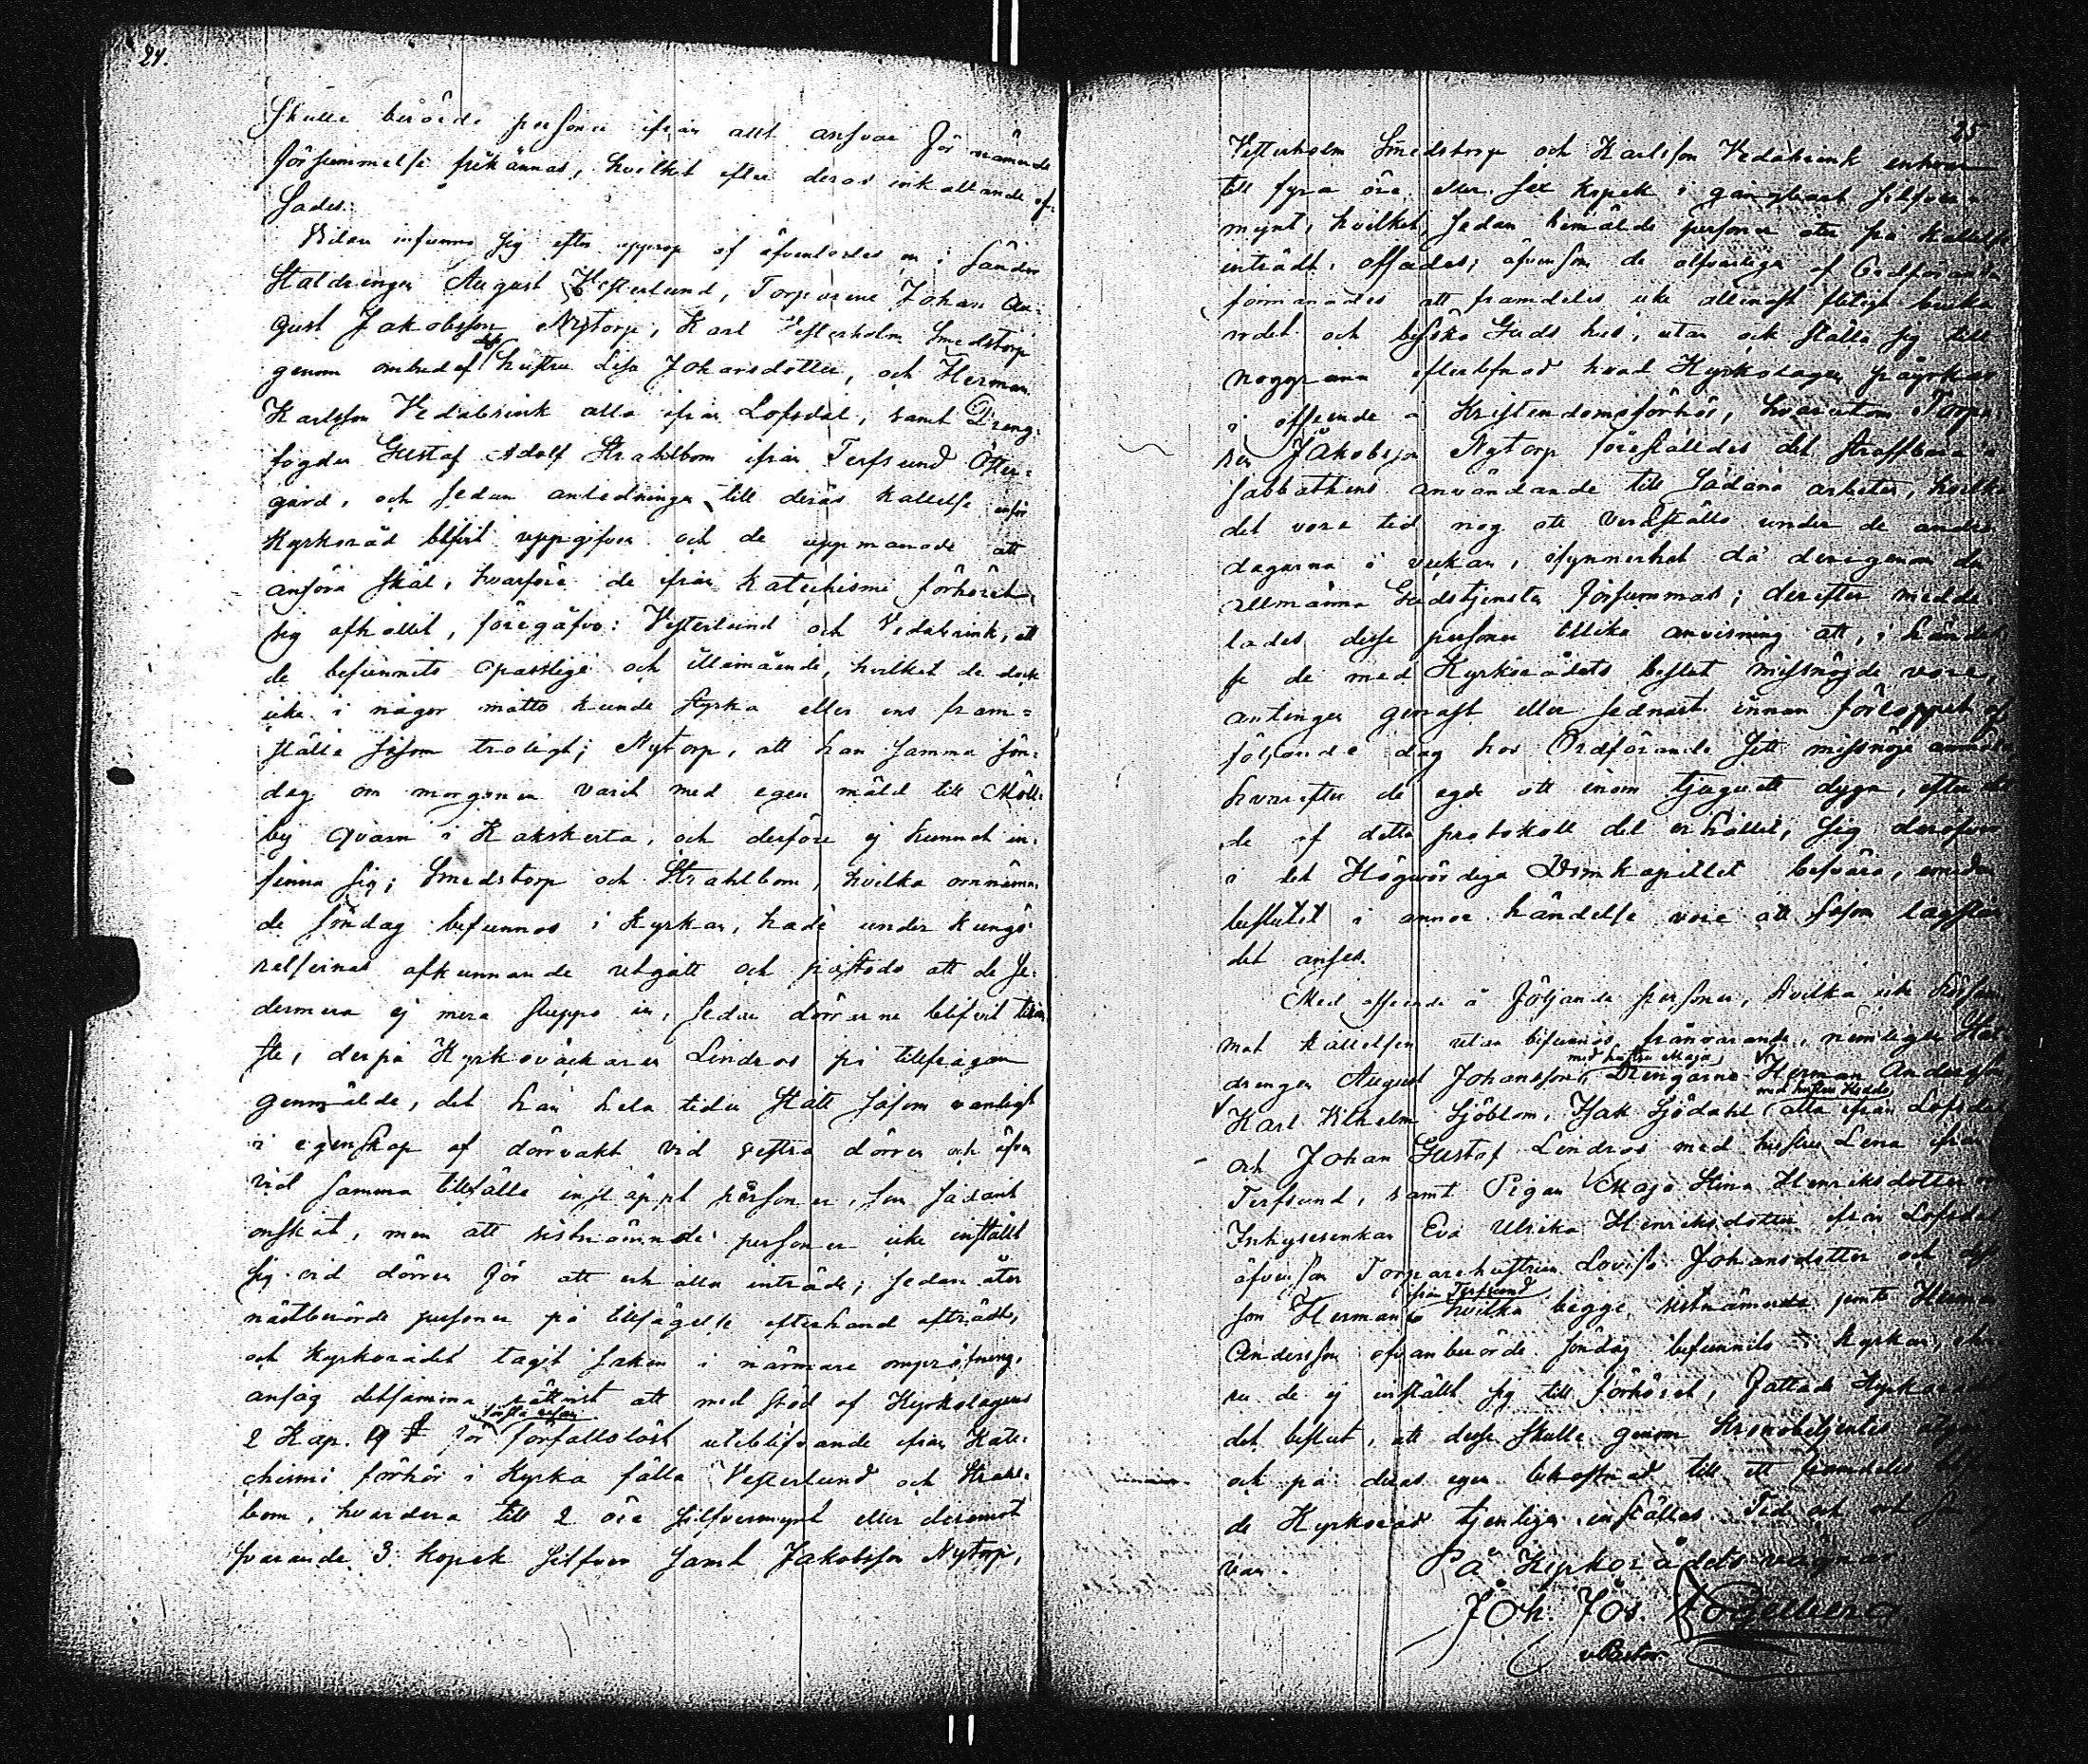 24.
Skulle berörde personer ifrån allt ansvar för nämnde
försummelse frikännas, hvilket efter deras inkallande af-
sades.
Vidare infunno sig efter upprop af åfvantordes en i sänder
Statdrengen August Vesterlund, Torparene Johan Au-
gust Jakobsson Nytorp, Karl Vesterholm Smedstorp
genom ombud af dess hustru Lisa Johansdotter, och Herman
Karlsson Vedabrink alla ifrån Lofsdal, samt Dreng-
fogden Gustaf Adolf Strahlbom ifrån Terfsund Öster-
gård, och sedan anledningen till deras kallelse inför
Kyrkoråd blifvit uppgifven och de uppmanade att
anföra skäl, hvarföre de ifrån Katechismi förhöret
sig afhållit, föregåfvo: Vesterlund och Vedabrink, att
de befunnits opasslige och illamående, hvilket de dock
icke i någon måtto kunde styrka eller ens fram-
ställa såsom troligt; Nytorp, att han samma sön-
dag om morgonen varit med egen mäld till Möll-
by qvarn i Kakskerta, och derföre ej kunnat in-
finna sig; Smedstorp och Strahlbom, hvilka omnämn-
de söndag befunnos i Kyrkan, hade under kungö-
relsernas afkunnande utgått och påstodo att de se-
dermera ej mera sluppo in, sedan dörrarne blifvit till
ste, derpå Kyrkoväckaren Lindros på tillfrågan
genmälde, det han hela tiden stått såsom vanligt
i egenskap af dörrvakt vid vestra dörren och äfven
vid samma tillfälle insläppt personer, som sådant
önskat, men att sistnämnde personer icke inställt
sig vid dörren för att erhålla inträde; sedan åter
nästberörde personer på tillsägelse efterhand afträdt,
och Kyrkorådet tagit saken i närmare ompröfning,
ansåg detsamma rättvist att med stöd af Kyrkolagens
2 Kap. 9 § för första resan förfallolöst uteblifvande ifrån Kate-
chismi förhör i Kyrka fälla Vesterlund och Strahl-
bom, hvardera till 2 öre silfvermynt eller deremot
svarande 3 kopek silfver samt Jakobsson Nytorp,
25
Vesterholm Smedstorp och Karlsson Vedabrink enhvar
till fyra öre eller sex kopek i gångbart silfver-
mynt, hvilket, sedan bemälde personer åter på kallelse
inträdt, afsades; äfvensom de alfvarligen af Ordföranden
förmanades att framdeles icke allenast flitigt bruka
ordet och besöka Guds hus, utan ock ställa sig till
noggrann efterlefnad hvad Kyrkolagen påyrkar
i afseende å Kristendomsförhör, hvarutom Torpa-
ren Jakobsson Nytorp föreställdes det straffbara i
sabbathens användande till sådana arbeten, hvilka
det vore tid nog att verkställa under de andra
dagarna i veckan, isynnerhet då derigenom den
allmänna Gudstjensten försummas; derefter medde-
lades desse personer tillika anvisning att, i händel-
se de med Kyrkorådets beslut missnöjde vore,
antingen genast eller sednast innan förloppet af
följande dag hos Ordförande sitt missnöje anmäla
hvarefter de ega att inom tjuguett dygn, efter det
de af detta protokoll del erhållit, sig deröfver
i det Högvördiga Domkapitlet besvära, emedan
beslutet i annor händelse vore att såsom lagståndet
det anses.
Med afseende å följande personer, hvilka icke hörsam-
mat kallelsen utan befunnos frånvarande, nemligen Stat-
drengen August Johansson med hustru Maja, Drengarne Herman Andersson,
Karl Vilhelm Sjöblom, Isak Sjödahl med hustru Hedda alla ifrån Lofsdal
och Johan Gustaf Lindros med hustru Lena ifrån
Terfsund, samt Pigan Maja Stina Henriksdotter och
Inhysesenkan Eva Ulrika Henriksdotter ifrån Lofsdal
äfvensom Torparehustrun Lovisa Johansdotter och dess
son Herman ifrån Terfsund hvilka begge sistnämnde jemte Herman
Andersson ofvanberörde söndag befunnits i kyrkan, eh-
ru de ej inställt sig till förhöret, fattade Kyrkorå-
det beslut, att desse skulle genom Kronobetjentes
och på deras egen bekostnad till ett framdeles
de Kyrkoråd tjenligen inställas. Tid och ort som
van.
På Kyrkorådets vägnar
Joh. Jos.
v Pastor